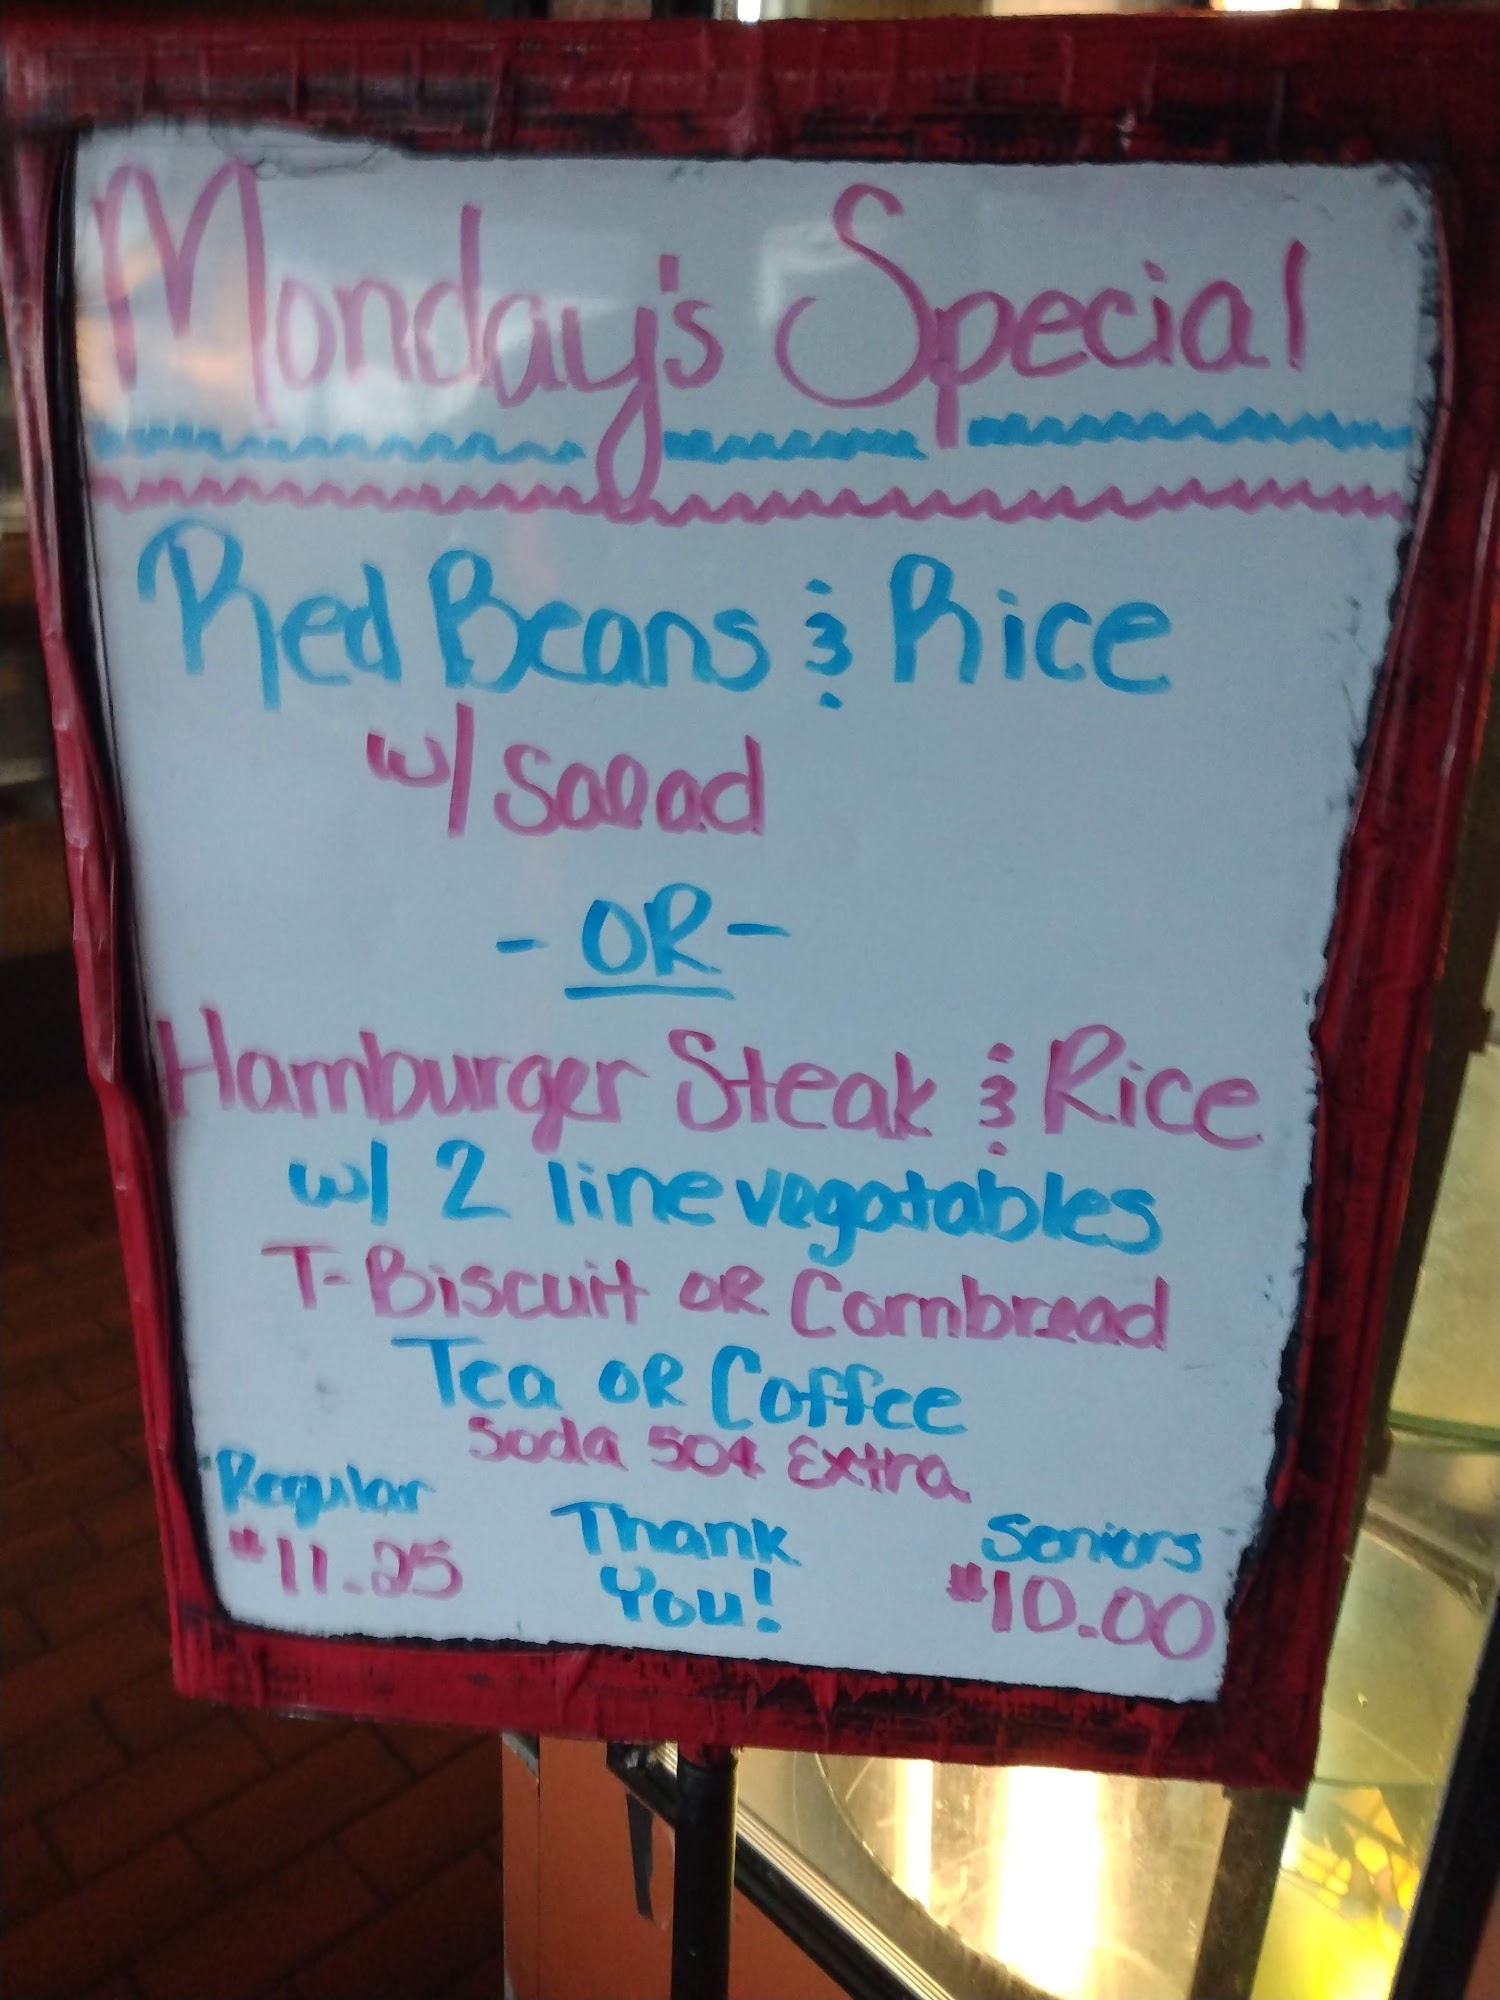 Monday's Special
Red Beans & Rice
w/ Salad
- OR -
Hamburger Steak & Rice
w/ 2 line vegatables
T-Biscuit OR Cornbread
Tea OR Coffee
Soda 50¢ Extra
Regular Thank Seniors
$11.25 You! $10.00